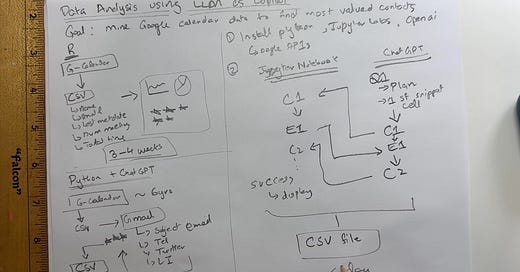 Data Analysis using LLM as Copilot
Goal: mine Google calendar data to find most valued contacts
R
G-calendar
CSV
↳ Name
↳ Email
↳ Last metdate
↳ Num meeting
↳ Total time
3-4 weeks
Python + ChatGPT
G-calendar ~ 6yrs
CSV
Gmail
↳ Subject email
↳ Tel
↳ Twitter
↳ LI
CSV
① Install python, Jupyter Labs, OpenAi
Google APIs
②
Jupyter Notebook
C1
E1
C2
success
↳ display
ChatGPT
Q1
→ Plan
→ 1st snippet
cell
C1
E1
C2
CSV file
"falcon"
2
3
4
5
6
7
8